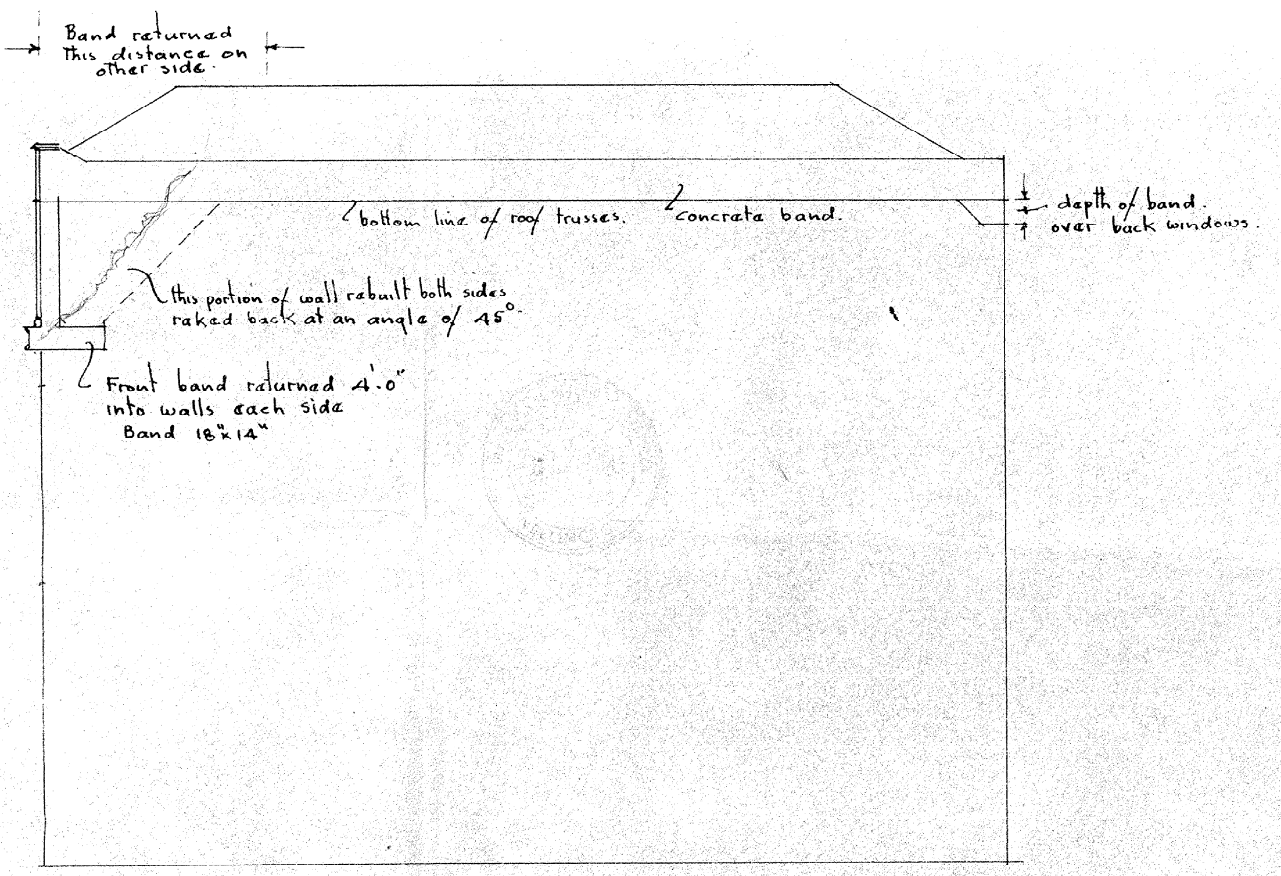 Band returned
This distance on
other side.
bottom line of roof trusses.
concrete band.
depth of band.
over back windows.
this portion of wall rebuilt both sides
raked back at an angle of 45°.
Front band returned 4'-0"
into walls each side
Band 18"x14"